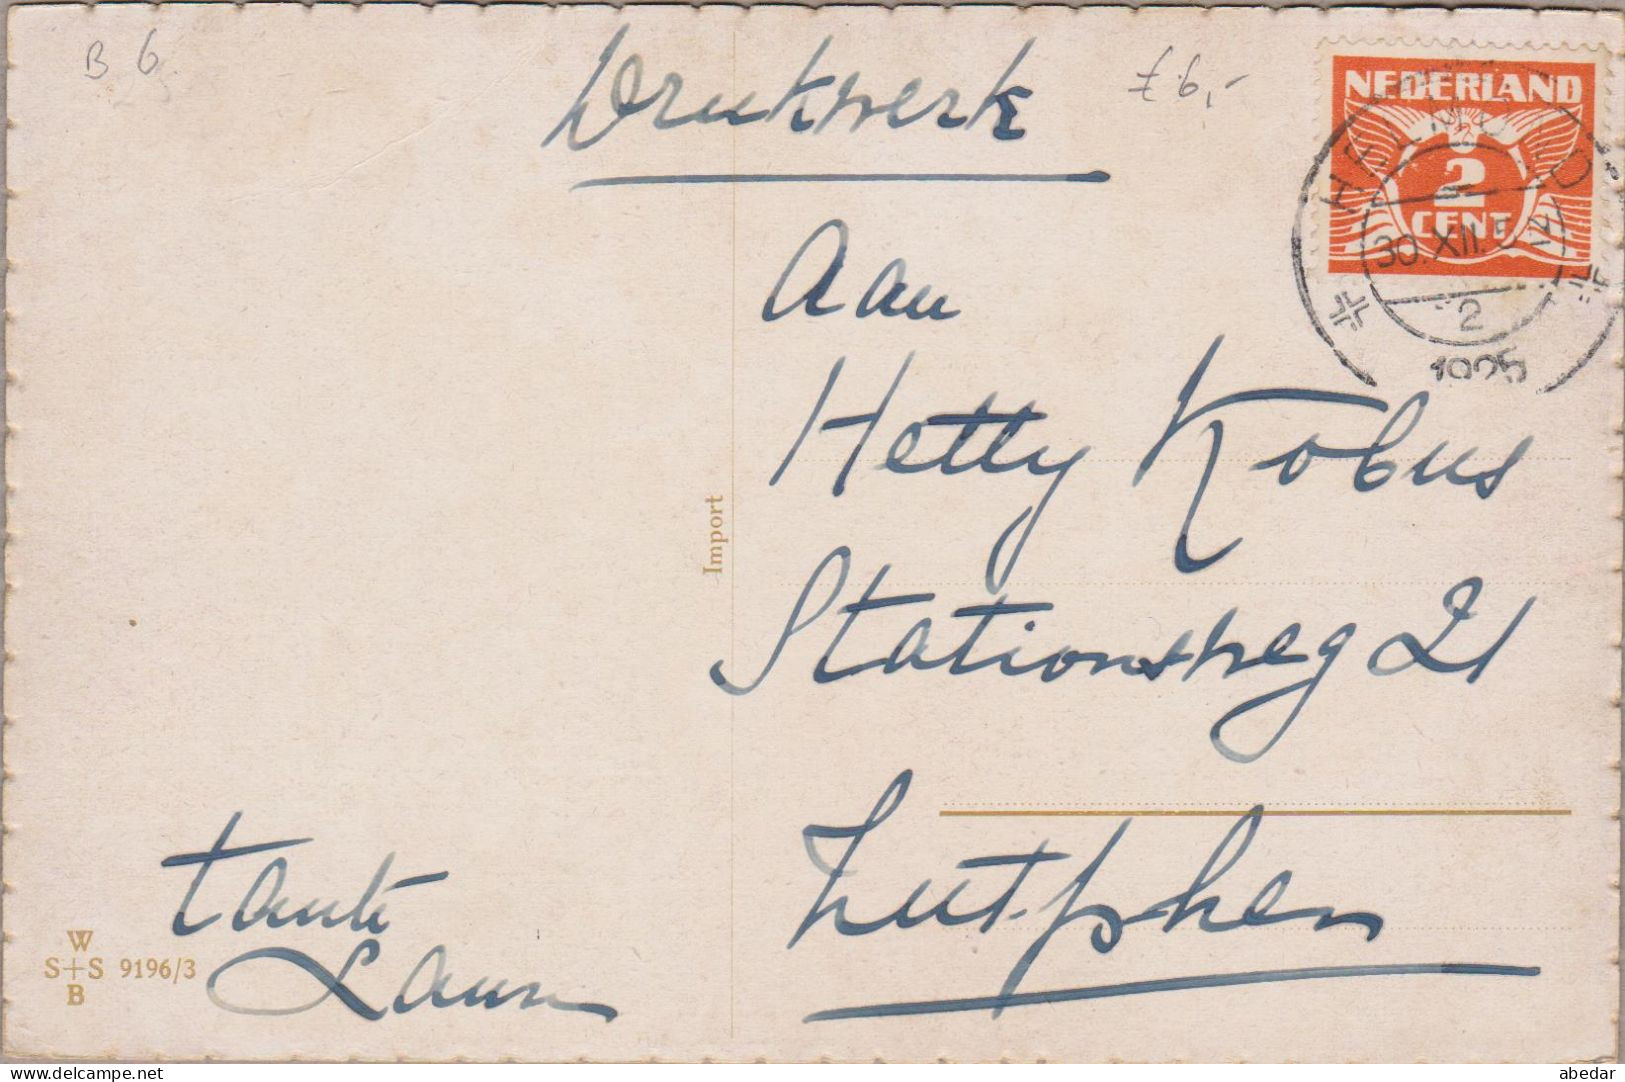 B 6
Drukwerk
f 6,-
NEDERLAND
2
CENT
HELMOND
30.XII.
12
2
1925
Aan
Hetty Kobus
Stationsweg 21
Zutphen
Import
tante
W
S+S 9196/3
B
delcampe.net
abedar